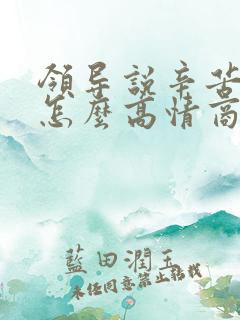 領导說辛苦
怎麼高情商
藍田潤玉
未经同意禁止转载